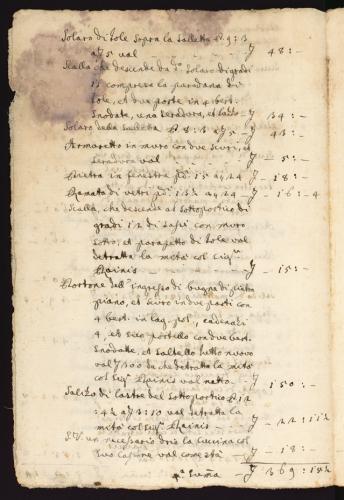 Solaro di tole sopra la salletta  9: 3
a 75 val — 48: –
Scalla che descende da d.º solaro di gradi
15 compresa la paradana di
tole, et due porte in 4 bert.
snodate, una seradura, et — 34: –
Solaro della salletta  8: 3  75 — 43: –
Armaretto in muro con due scuri, et
seradura val — 5: –
in finestra pd: 15 a 24 — 18: –
di vetri pd: 132 a 24 — 16: – 4
Scalla, che descende al sottoportico di
gradi 12 di sassi con muro
sotto, et parapetto di tole val
detratta la metà col Sig.r
Rainis — 15: –
Portone dell' ingresso di
piano, et scuro in due parti con
4 bert: in lag. pol., cadenazi
4, et suo portello con due bert.
snodatte, et saltello tutto nuovo
val 300 che detratta la metà
col Sig.r Rainis val netto — 150: –
Salizo di lastre del sottoportico  12
: 42 a 3:10 val detratta la
metà col Sig.r Rainis — 22: 11 ½
un necessario driò la cucina col
suo casune val — 18: –
Suma — 369: 15 ½